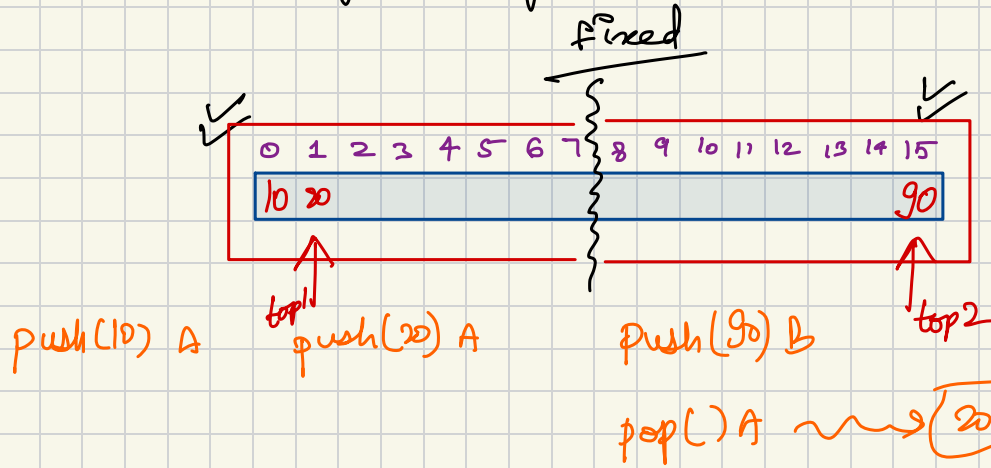 fixed
0 1 2 3 4 5 6 7 8 9 10 11 12 13 14 15
10 20 90
top1 top2
push(10) A push(20) A push(90) B
pop() A 20